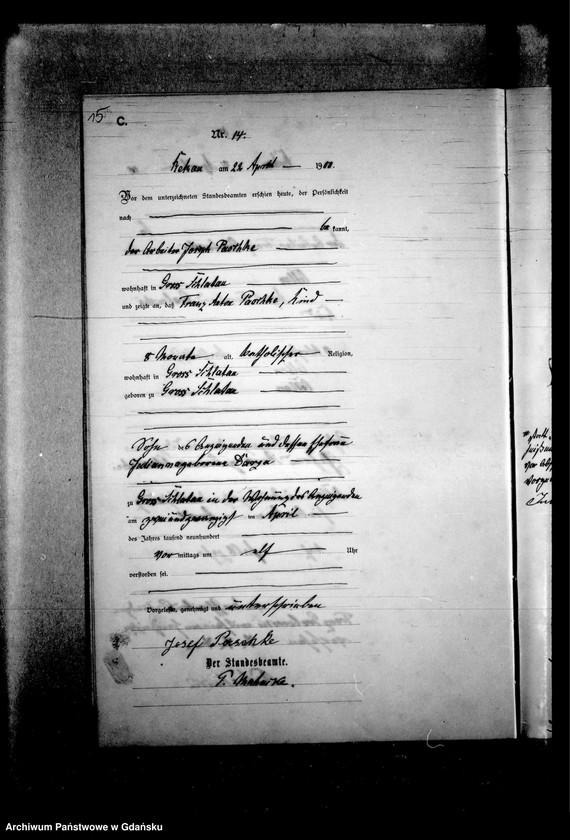 15
C.
Nr. 14.
Kekau am 22 April 1900.
Vor dem unterzeichneten Standesbeamten erschien heute, der Persönlichkeit
nach
bekannt,
der Arbeiter Joseph Paschke
wohnhaft in Gross Schlatau
und zeigte an, daß Franz Anton Paschke, Kind
8 Monate alt, katholischer Religion,
wohnhaft in Gross Schlatau
geboren zu Gross Schlatau
Sohn des Anzeigenden und dessen Ehefrau
geborene
zu Gross Schlatau in der Wohnung des Anzeigenden
am zweiundzwanzigsten April
des Jahres tausend neunhundert
vormittags um elf Uhr
verstorben sei.
Vorgelesen, genehmigt und unterschrieben
Josef Paschke
Der Standesbeamte.
Archiwum Państwowe w Gdańsku